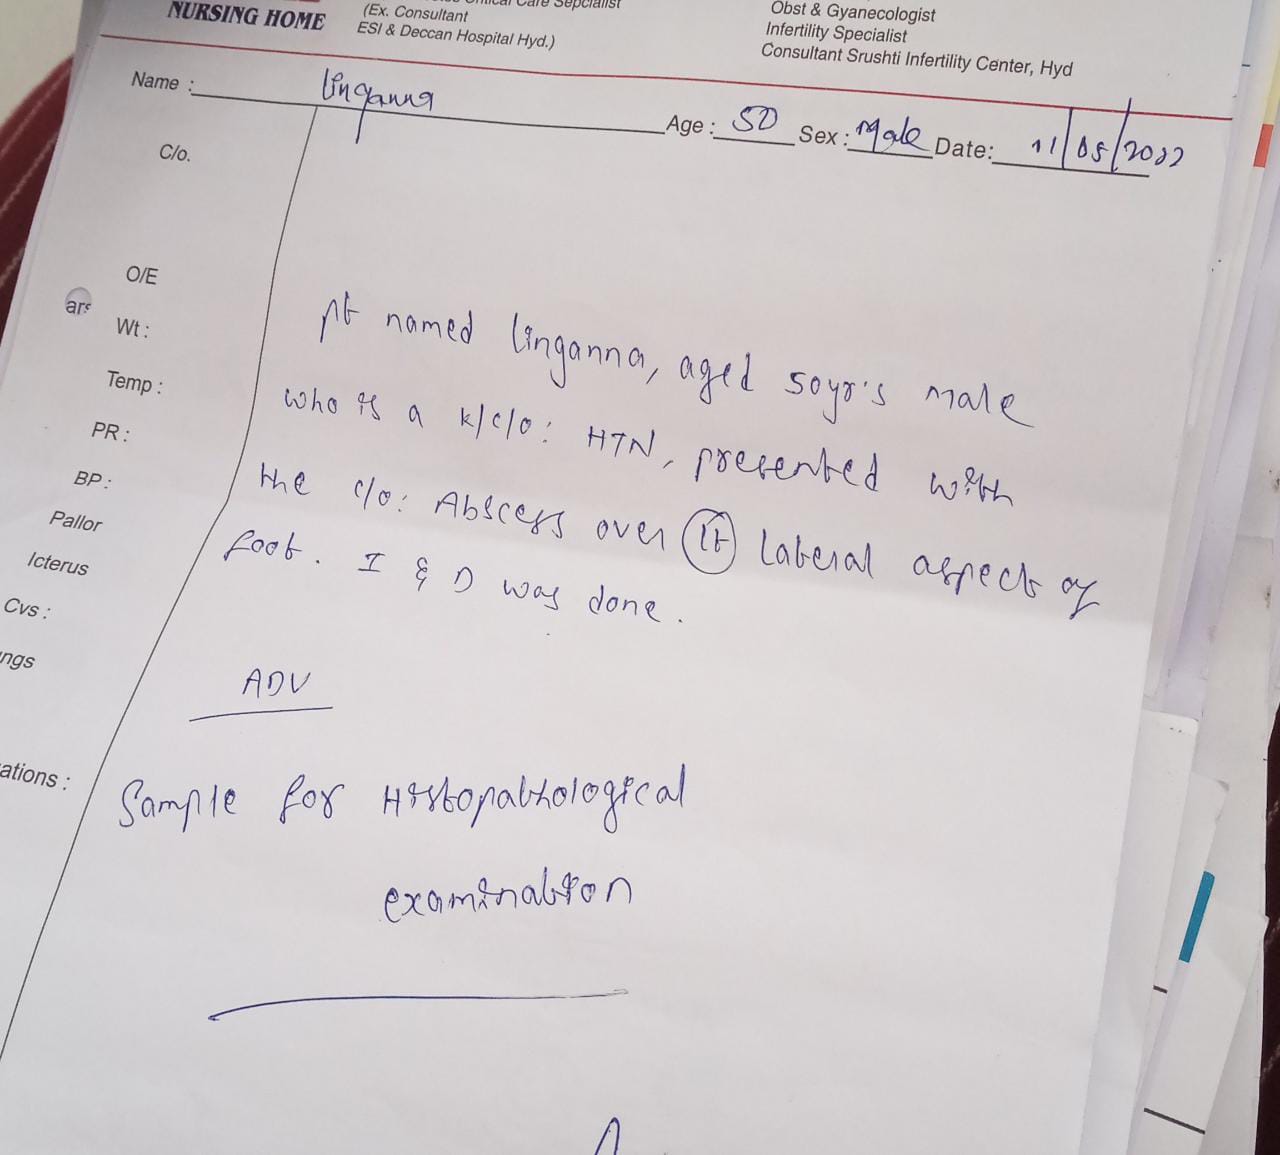 NURSING HOME
Critical Care Sepcialist
(Ex. Consultant
ESI & Deccan Hospital Hyd.)
Obst & Gyanecologist
Infertility Specialist
Consultant Srushti Infertility Center, Hyd
Name : linganna Age : 50 Sex : Male Date: 11/05/2022
C/o.
O/E
Wt :
Temp :
PR :
BP :
Pallor
Icterus
Cvs :
ngs
ations :
pt named linganna, aged 50yr's male
who is a k/c/o: HTN, presented with
the c/o: Abscess over (lt) lateral aspect of
foot. I & D was done.
ADV
Sample for Histopathological
examination